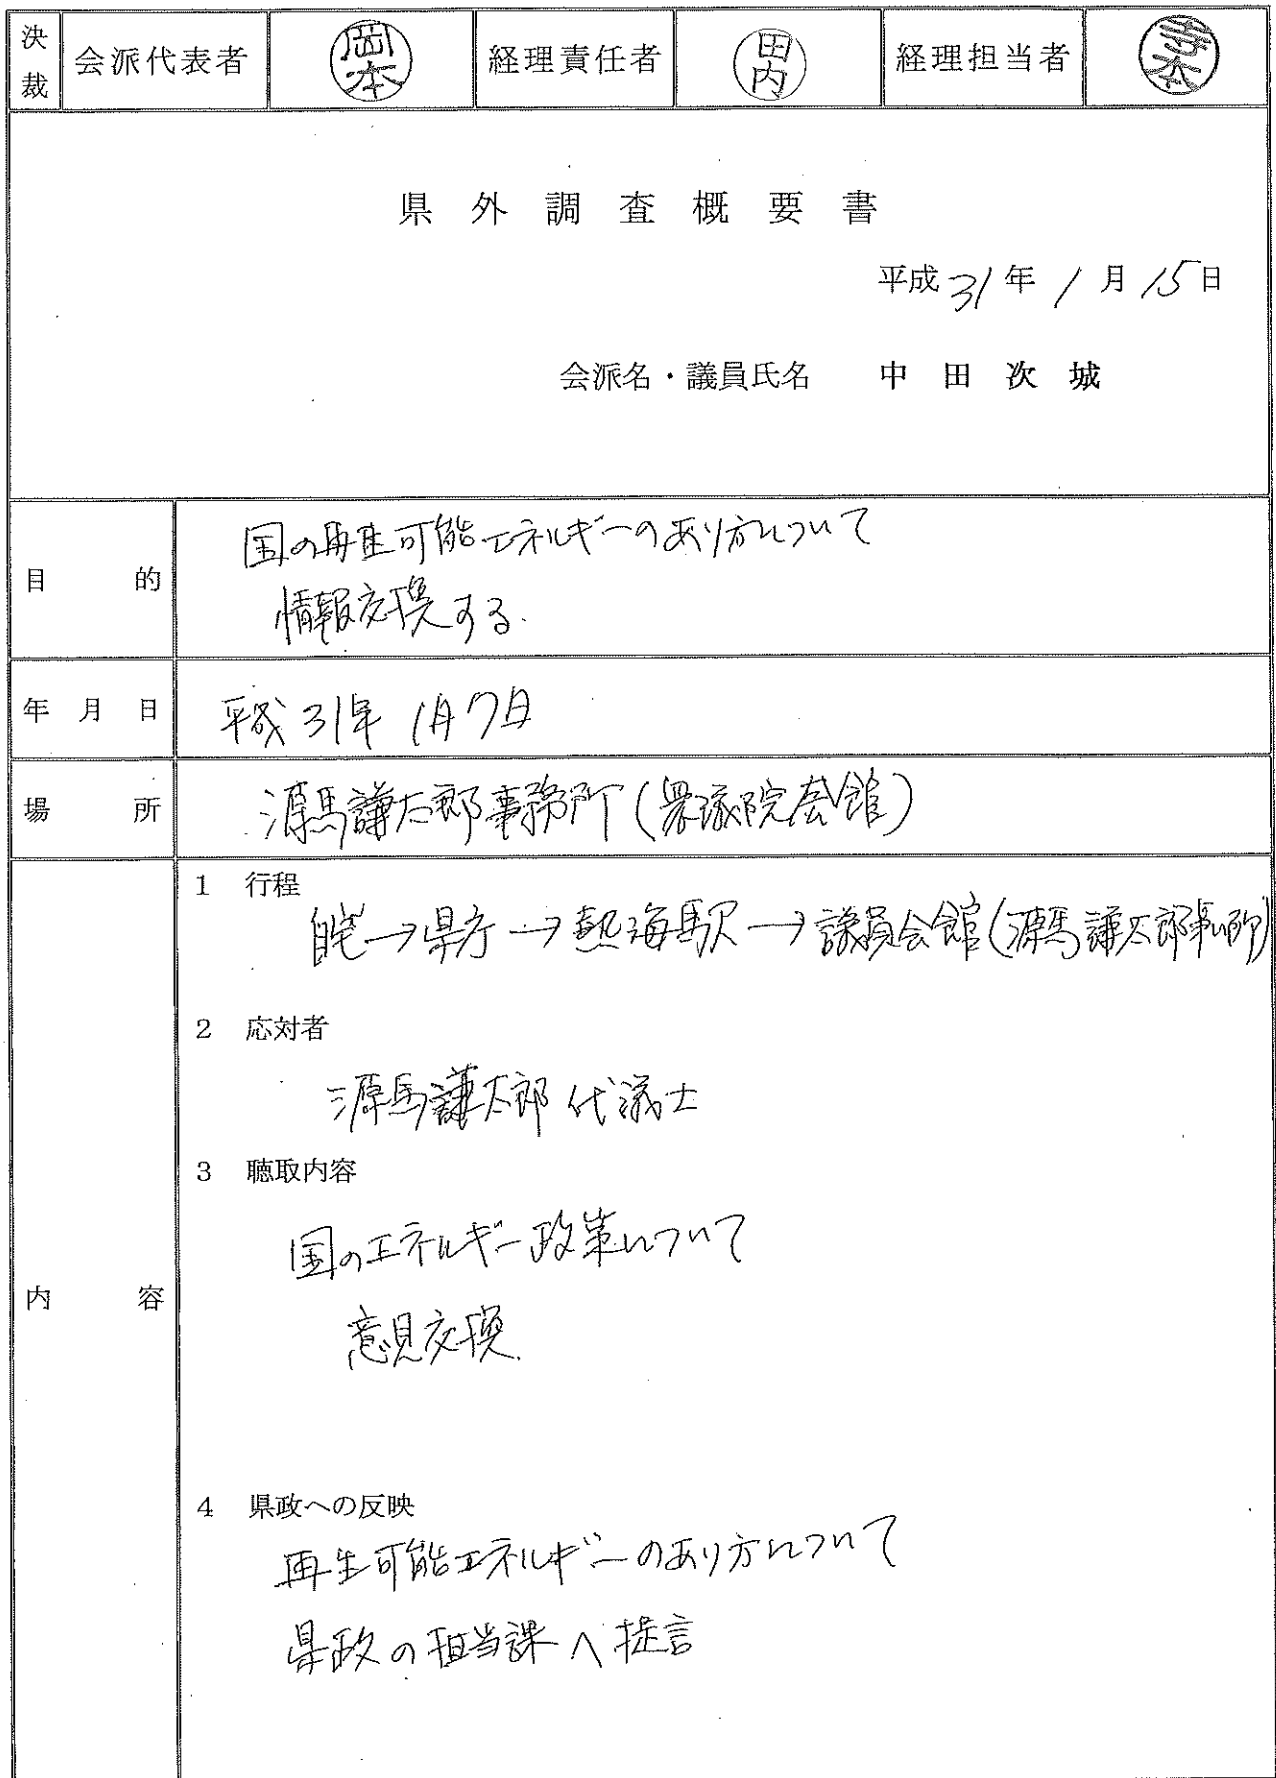 決裁 会派代表者 岡本 経理責任者 田内 経理担当者 寺本
県外調査概要書
平成31年1月15日
会派名・議員氏名 中田次城
目的 国の再生可能エネルギーのあり方について
情報交換する.
年月日 平成31年1月7日
場所 源馬謙太郎事務所(衆議院会館)
内容
1 行程
自宅→県庁→熱海駅→議員会館(源馬謙太郎事務所)
2 応対者
源馬謙太郎代議士
3 聴取内容
国のエネルギー政策について
意見交換.
4 県政への反映
再生可能エネルギーのあり方について
県政の担当課へ提言